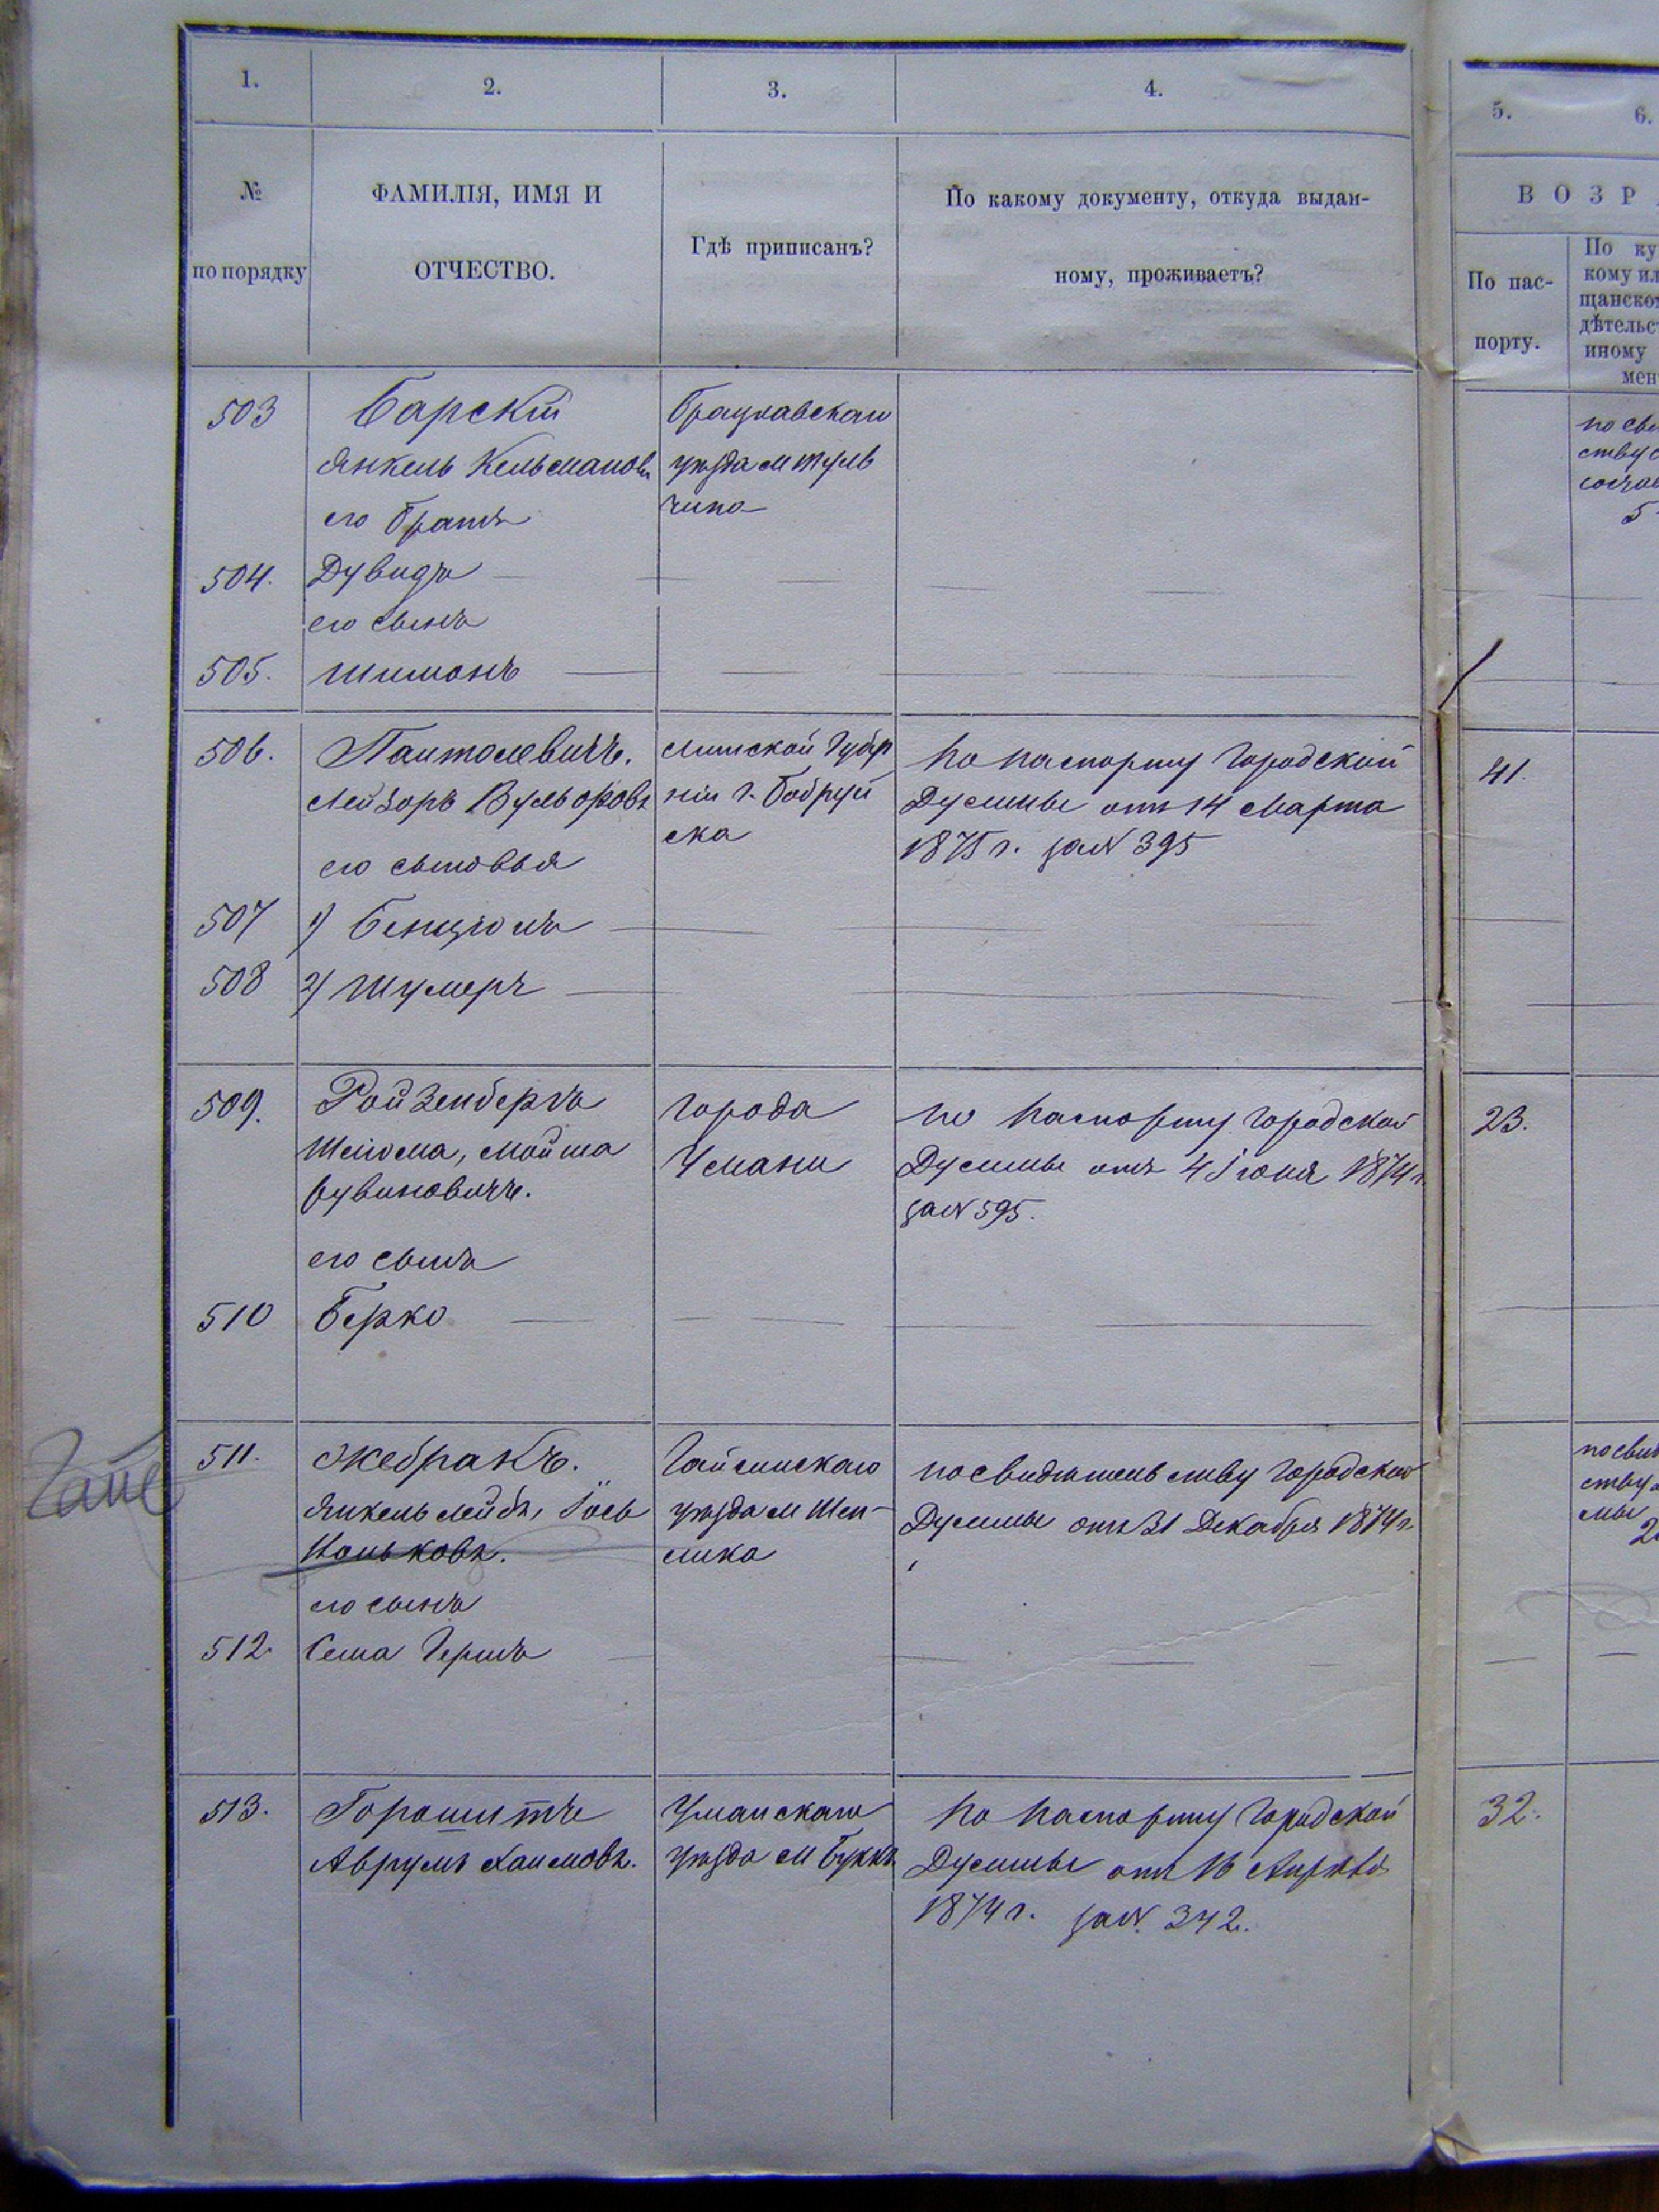 1.
2.
3.
4.
5.
6.
№
по порядку
ФАМИЛІЯ, ИМЯ И
ОТЧЕСТВО.
Гдѣ приписанъ?
По какому документу, откуда выдан-
ному, проживаетъ?
ВОЗР
По пас-
порту.
По ку
кому ил
щанско
дѣтельс
иному
мен
503
Барскій
Янкель Кельманов
его братъ
Брацлавскаго
уѣзда м Туль
чина
504.
Дувидъ
его сынъ
505.
Шимонъ
506.
Пантолевичъ.
Лейзоръ Вульфовъ
его сыновья
Минской Губер
ніи г. Бобруй
ска
По паспорту Городской
Думы отъ 14 Марта
1875 г. за № 395
41.
507
1) Бенціонъ
508
2) Шумеръ
509.
Ройзенбергъ
Шліома, Мойша
Рувиновичъ.
его сынъ
города
Умани
по паспорту Городской
Думы отъ 4 Іюня 1874 г.
за № 595.
23.
510
Берко
Гайс
511.
Жебракъ.
Янкель Лейбъ, Іось
Ноньковъ.
его сынъ
Гайсинскаго
уѣзда м
по свидѣтельству Городской
Думы отъ 31 Декабря 1874 г.
512.
Сема Гершъ
513.
Горошитъ
Аврумъ Хаимовъ.
Уманскаго
уѣзда м Букы
По паспорту Городской
Думы отъ 16 Апрѣля
1874 г. за №. 342.
32.